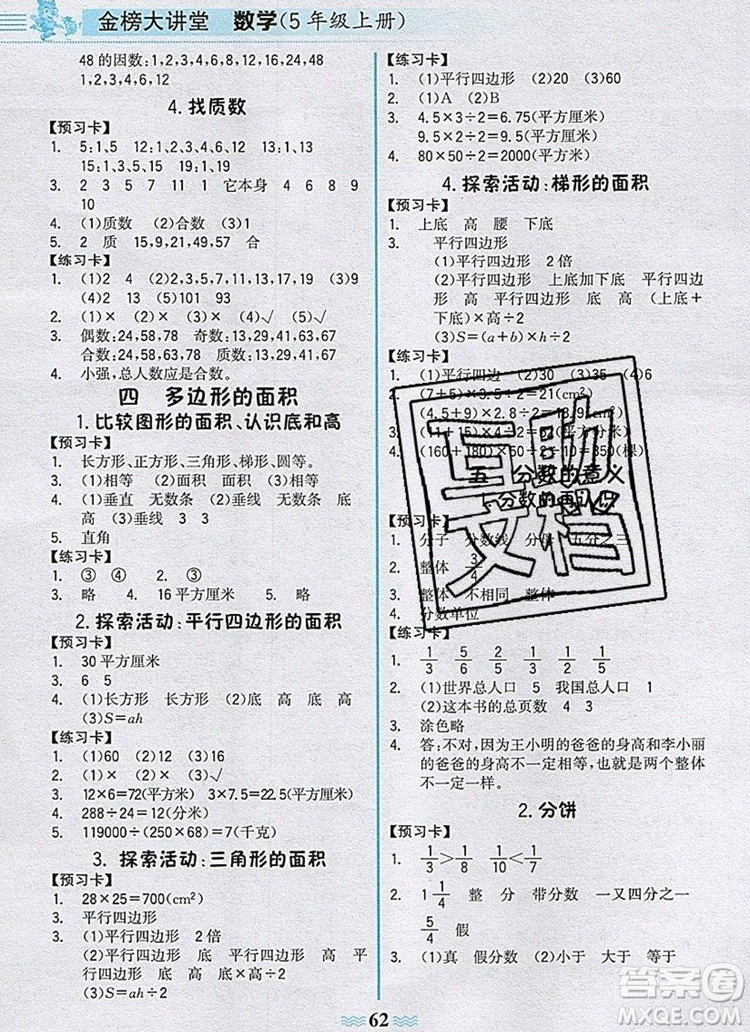 金榜大讲堂 数学(5年级上册)
48的因数:1,2,3,4,6,8,12,16,24,48
12,24
4.找质数
【预习卡】
1. 5:1,5 12:1,2,3,4,6,12 13:1,13
15:1,3,5,15 19:1,19
3. 2 3 5 7 11 1 它本身 4 6 8 9
10
4. (1)质数 (2)合数 (3)1
5. 2 质 15,9,24,49,57 合
【练习卡】
1. (1)2 4 (2)2,3,5,7,11,13,17,19 (3)9
(4)2 13 (5)101 93
2. (1)× (2)× (3)× (4)√ (5)√
3. 偶数:24,58,78 奇数:13,29,41,63,67
合数:24,58,63,78 质数:13,29,41,67
4. 小强,总人数应是合数。
四 多边形的面积
1.比较图形的面积、认识底和高
【预习卡】
1. 长方形、正方形、三角形、梯形、圆等。
3. (1)相等 (2)相等 (3)面积
4. (1)垂直 无数条 (2)垂线 无数条 底
高 (3)垂线 3 3
5. 直角
【练习卡】
1. ③ ④ 2. ① ④ ⑤
3. 略 4. 16平方厘米 5. 略
2.探索活动:平行四边形的面积
【预习卡】
1. 30平方厘米
3. 6 5
4. (1)长方形 长方形 (2)底 高 底 高
(3)S=ah
【练习卡】
1. (1)60 (2)12 (3)16
2. (1)× (2)× (3)√
3. 12×6=72(平方米) 3×7.5=22.5(平方米)
4. 288÷24=12(分米)
5. 119000÷(250×68)=7(千克)
3.探索活动:三角形的面积
【预习卡】
1. 28×25=700(cm²)
3. 平行四边形
3. (1)平行四边形 2倍
(2)平行四边形 底 高 底 高 平
行四边形 平行四边形 底 高 ÷2
(3)S=ah÷2
【练习卡】
1. (1)平行四边形 (2)20 (3)60
2. (1)A (2)B
3. 4.5×3÷2=6.75(平方厘米)
9.5×2÷2=9.5(平方厘米)
4. 80×50÷2=2000(平方米)
4.探索活动:梯形的面积
【预习卡】
1. 上底 高 腰 下底
3. 平行四边形
(1)平行四边形 2倍
(2)平行四边形 上底加下底 高 平行
四边形 平行四边形 底 高 (上底+
下底)×高÷2
(3)S=(a+b)×h÷2
【练习卡】
1. (1)平行四边 (2)30 (3)35 (4)6
2. (7+5)×3.5÷2=21(cm²)
(4.5+9)×2.8÷2=18.9(cm²)
3. (11+15)×4÷2=52(平方分米)
4. (160+180)×50÷2÷10=850(棵)
五 分数的意义
1.分数的再认识
【预习卡】
1. 分子 分数线 分母 五分之三
2. 整体 3/4
3. 整体 不相同 整体
4. 分数单位
【练习卡】
1. 1/3 5/6 2/5 1/3 1/2
2. (1)世界总人口 5 我国总人口
(2)这本书的总页数 4 3
3. 涂色略
4. 答:不对,因为王小明的爸爸的身高和李小丽
的爸爸的身高不一定相等,所以他们的身高
不一定一样。
2.分饼
【预习卡】
1. 1/3>1/8 1/10<1/9
2. 1 1/4 整 分 带分数 一又四分之一
5/4 假
3. (1)真 假分数 (2)小于 大于 等于
62
互助文档
答案圈
MXQE.COM